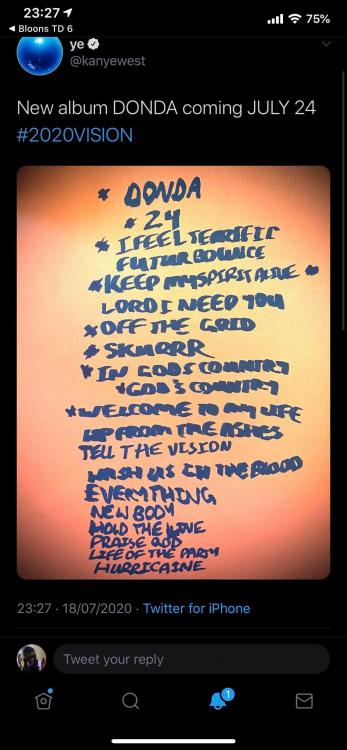 23:27
75%
◀ Bloons TD 6
ye
@kanyewest
New album DONDA coming JULY 24
#2020VISION
* DONDA
* 24
* I FEEL TERRIFIC
FUTURBOUNCE
*KEEP MY SPIRIT ALIVE *
LORD I NEED YOU
*OFF THE GRID
* SKURRR
*IN GODS COUNTRY
*GOD'S COUNTRY
*WELCOME TO MY LIFE
UP FROM THE ASHES
TELL THE VISION
WASH US IN THE BLOOD
EVERYTHING
NEW BODY
HOLD THE LINE
PRAISE GOD
LIFE OF THE PARTY
HURRICAINE
23:27 · 18/07/2020 · Twitter for iPhone
Tweet your reply
1